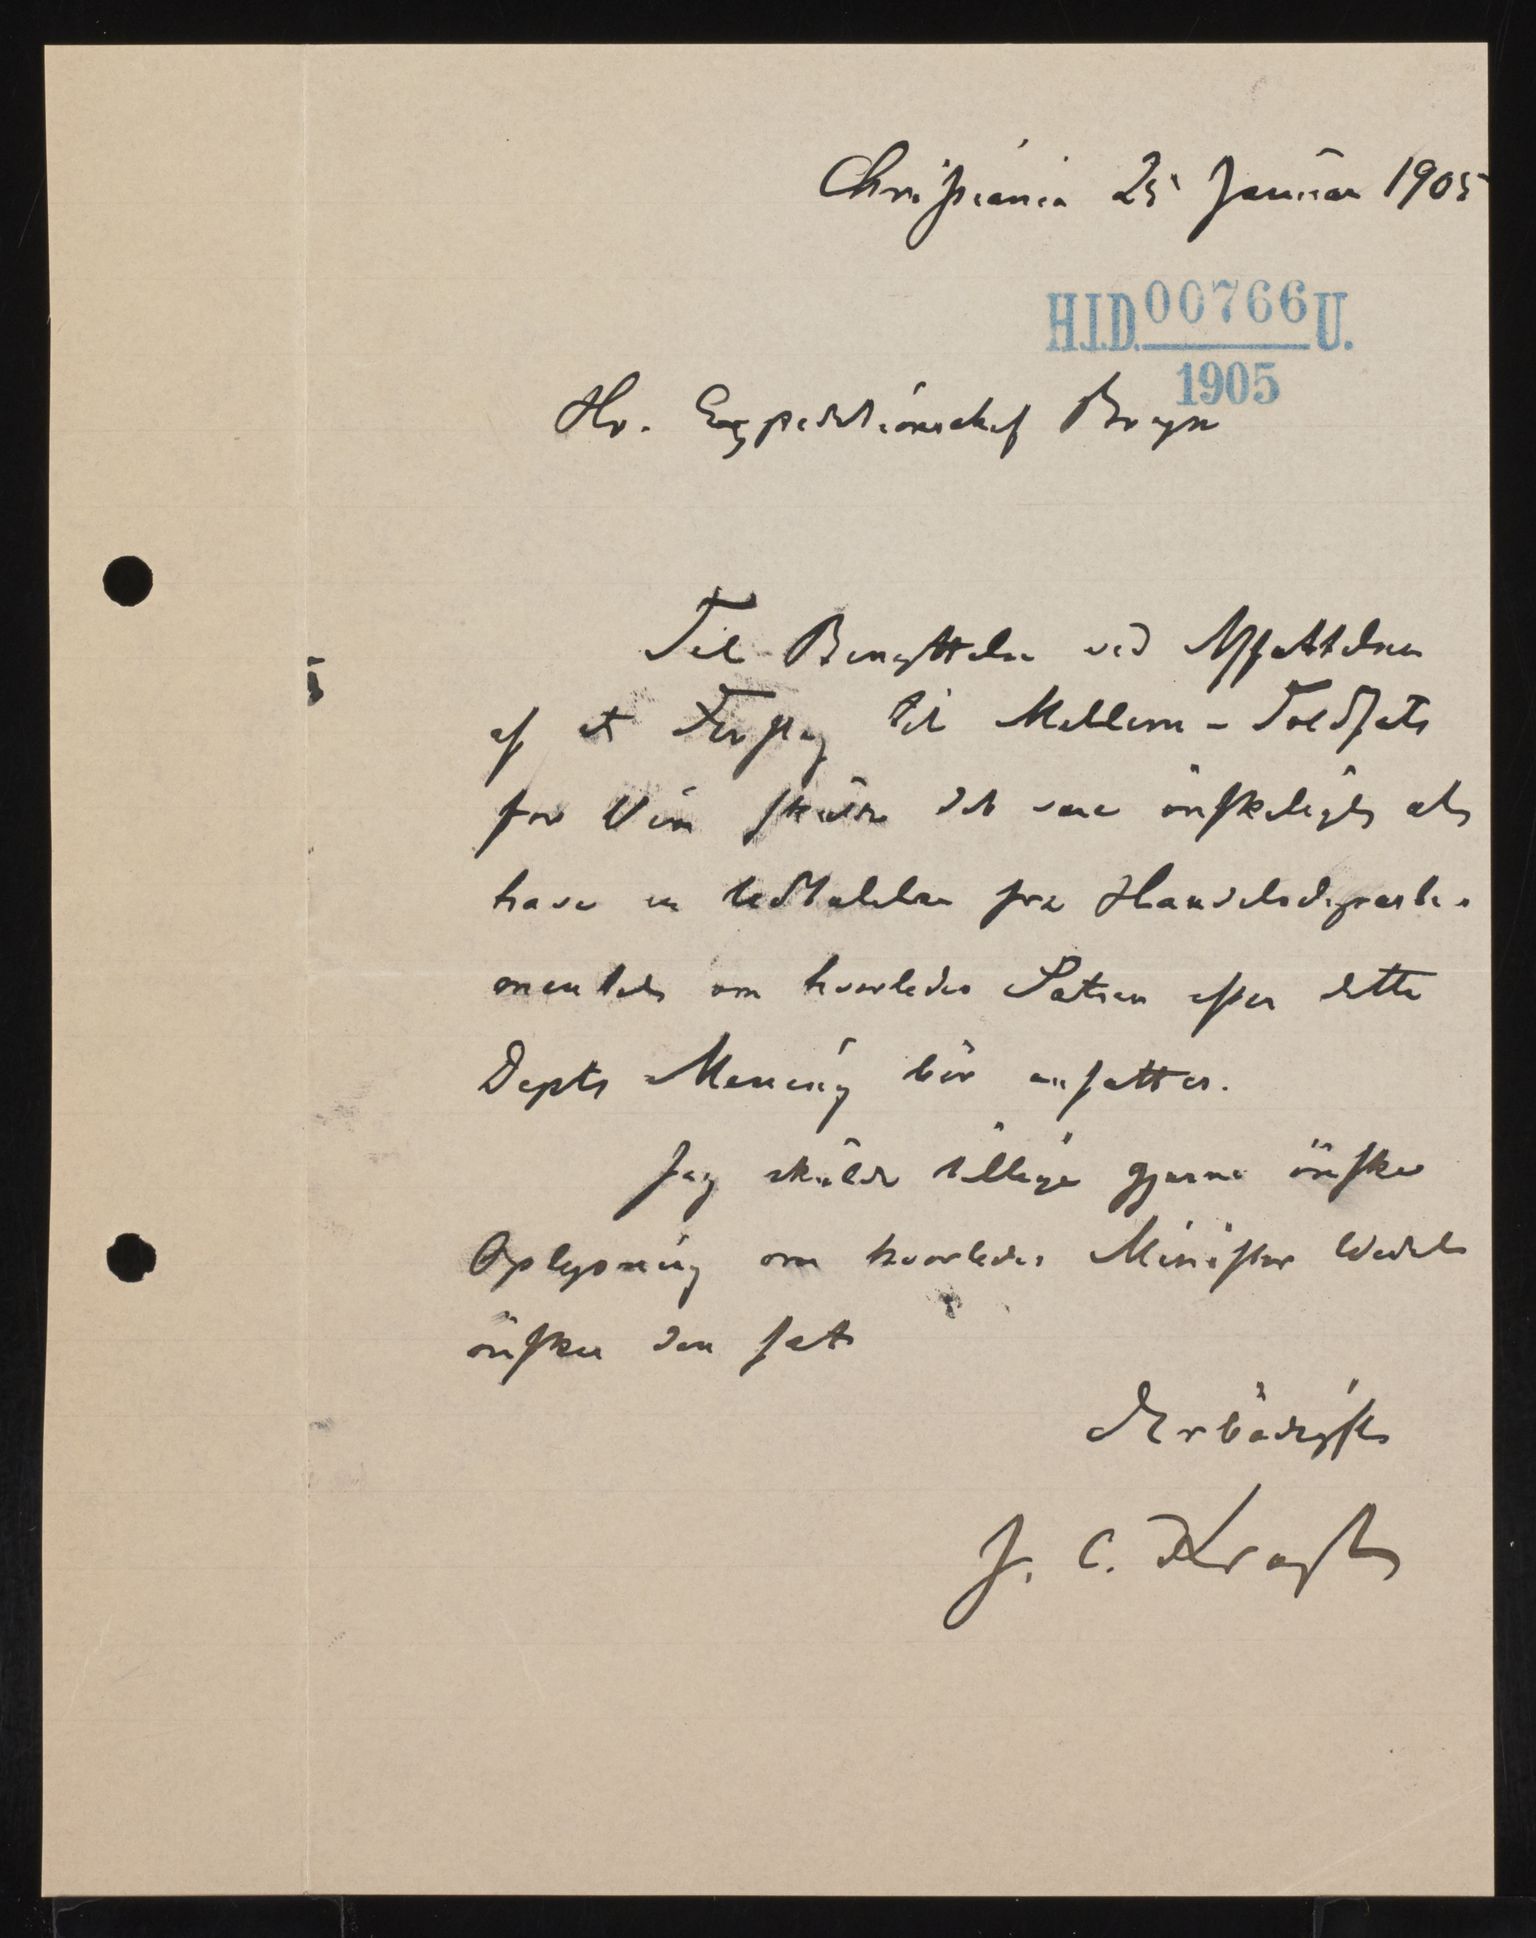 Christiania 25 Januar 1905
H.I.D. 00766 U.
1905
Hr. Expeditionschef Bryn
Til Benyttelse ved Affattelsen
af et Forslag til Mellem-Toldsats
for Vin skulde det være ønskeligt at
have en Udtalelse fra Handelsdeparte-
mentet om hvorledes Satsen efter dette
Depts Mening bør ansættes.
Jeg skulde tillige gjerne ønske
Oplysning om hvorledes Minister Wedel
ønsker den sat
Ærbødigst
J. C. Kragh